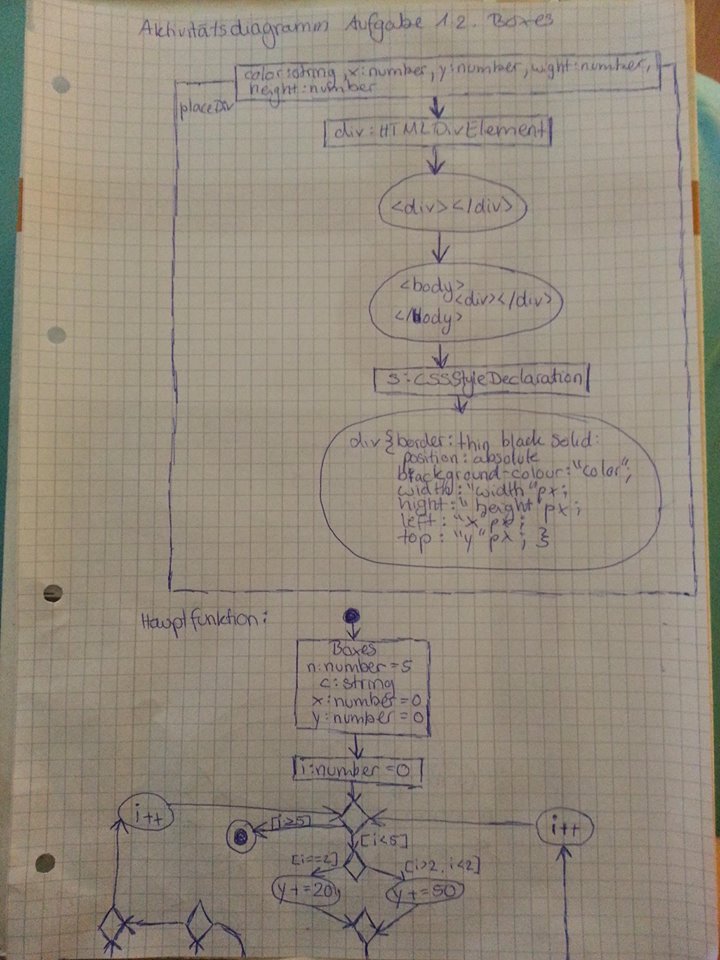 Aktivitätsdiagramm Aufgabe 1.2. Boxes
color:string, x:number, y:number, wight:number,
height:number
placeDiv
div:HTMLDivElement
<div></div>
<body>
<div></div>
</body>
s:CSSStyleDeclaration
div{border:thin black solid:
position:absolute
background-colour:"color";
width:"width"px;
hight:"height"px;
left:"x"px;
top:"y"px;}
Hauptfunktion:
Boxes
n:number=5
c:string
x:number=0
y:number=0
i:number=0
i++
[i≥5]
i++
[i<5]
[i==2]
[i>2, i<2]
y+=20
y+=50